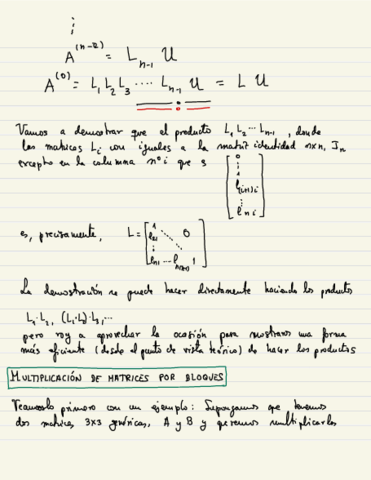 ⋮
A^(n-2) = L_{n-1} U
A^(0) = L_1 L_2 L_3 ····· L_{n-1} U = L U
Vamos a demostrar que el producto L_1 L_2 ··· L_{n-1}, donde
las matrices L_i son iguales a la matriz identidad n×n, I_n
excepto en la columna nº i que es [0 ⋮ 1 l_{(i+1)i} ⋮ l_{ni}]
es, precisamente, L = [1 l_{21} ⋱ 0 ⋮ l_{n1} ··· l_{n(n-1)} 1]
La demostración se puede hacer directamente haciendo los productos
L_1·L_2, (L_1·L_2)·L_3, ...
pero voy a aprovechar la ocasión para mostraros una forma
más eficiente (desde el punto de vista teórico) de hacer los productos
MULTIPLICACIÓN DE MATRICES POR BLOQUES
Veamoslo primero con un ejemplo: Supongamos que tenemos
dos matrices 3x3 genéricas, A y B y queremos multiplicarlas